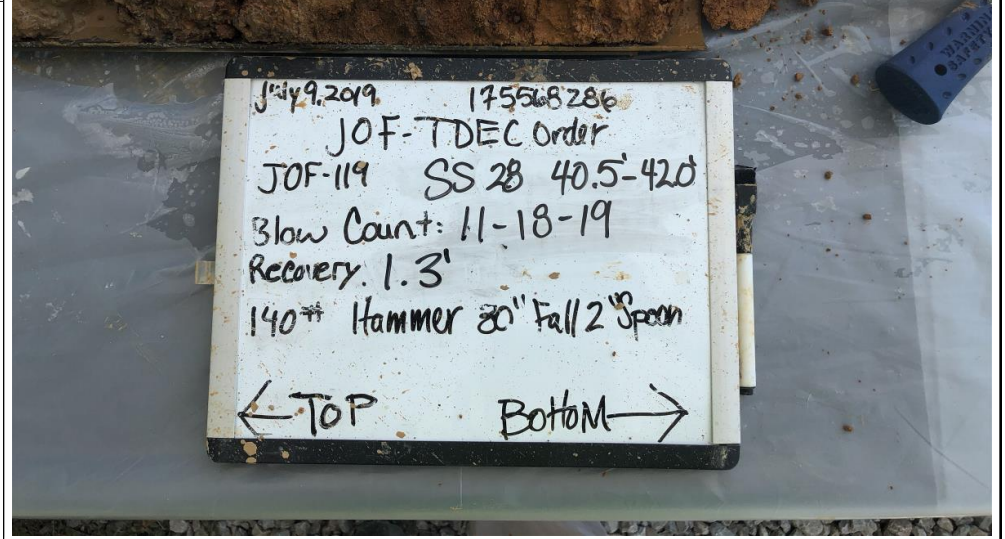 July 9, 2019 175568286
JOF-TDEC Order
JOF-119 SS 28 40.5'-42.0'
Blow Count: 11-18-19
Recovery: 1.3'
140# Hammer 30" Fall 2" Spoon
←TOP BOTTOM→
WARNING